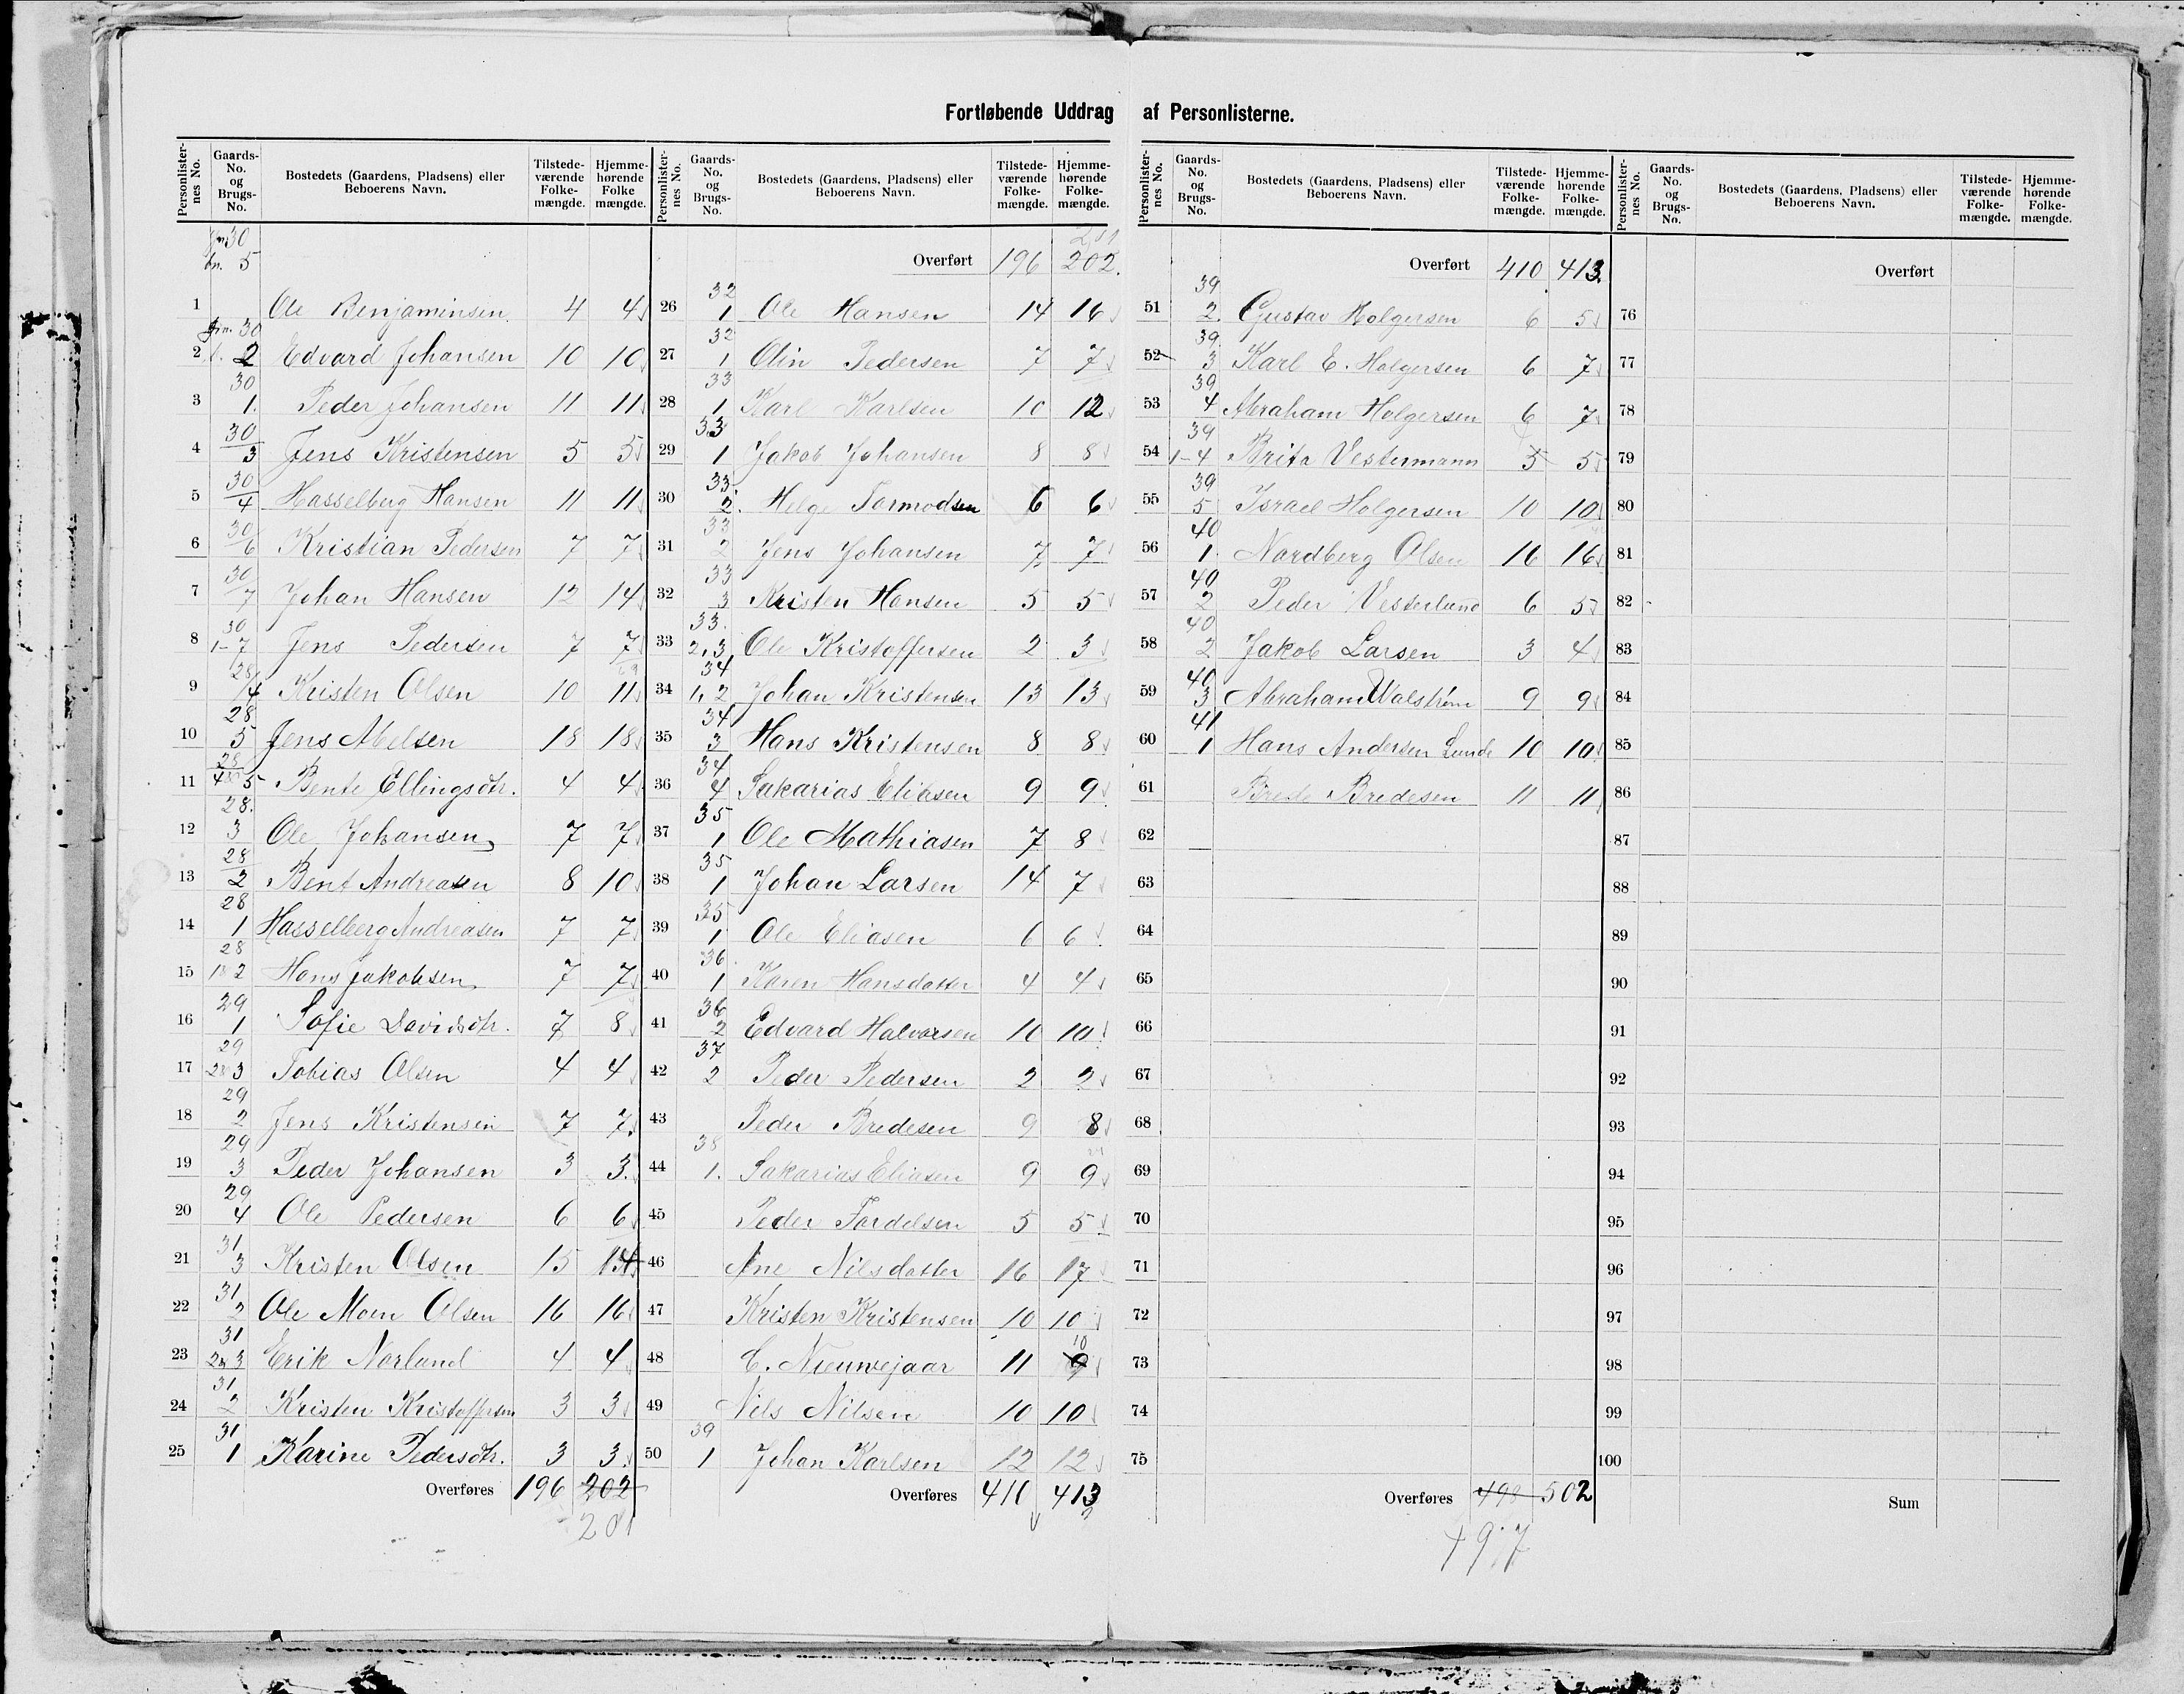 Fortløbende Uddrag af Personlisterne.
Personlisternes No. Gaards-No. og Brugs-No. Bostedets (Gaardens, Pladsens) eller Beboerens Navn. Tilstedeværende Folkemængde. Hjemmehørende Folkemængde.
gn. 30
bn. 5
1 Ole Benjaminsen 4 4
gn. 30
2 b. 2 Edvard Johansen 10 10
30
3 1. Peder Johansen 11 11
30
4 3 Jens Kristensen 5 5
30
5 4 Hasselberg Hansen 11 11
30
6 6 Kristian Pedersen 7 7
30
7 7 Johan Hansen 12 14
30
8 1-7 Jens Pedersen 7 7
28
9 4 Kristen Olsen 10 11
28
10 5 Jens Abelsen 18 18
28
11 4 5 Bente Ellingsdtr. 4 4
28.
12 3 Ole Johansen 7 7
28
13 2 Bent Andreasen 8 10
28
14 1 Hasselberg Andreasen 7 7
28
15 1 2 Hans Jakobsen 7 7
29
16 1 Sofie Davidsdtr. 7 8
29
17 2 3 Tobias Olsen 4 4
29
18 2 Jens Kristensen 7 7
29
19 3 Peder Johansen 3 3.
29
20 4 Ole Pedersen 6 6
31
21 3 Kristen Olsen 15 14
31
22 2 Ole Moen Olsen 16 16
31
23 2 3 Erik Norlund 4 4
31
24 2 Kristen Kristoffersen 3 3
31
25 1 Karine Pedersdtr. 3 3
Overføres 196 202
201
201
Overført 196 202.
32
26 1 Ole Hansen 14 16
32
27 1 Olin Pedersen 7 7
33
28 1 Karl Karlsen 10 12
33
29 1 Jakob Johansen 8 8
33
30 2. Helge Tormodsen 6 6
33
31 2 Jens Johansen 7 7
33
32 3 Kristen Hansen 5 5
33.
33 2,3 Ole Kristoffersen 2 3
34
34 1,2 Johan Kristensen 13 13
34
35 3 Hans Kristensen 8 8
34
36 4 Sakarias Eliasen 9 9
35
37 1 Ole Mathiasen 7 8
35
38 1 Johan Larsen 14 7
35
39 1 Ole Eliasen 6 6
36
40 1 Karen Hansdatter 4 4
36
41 2 Edvard Halvorsen 10 10
37
42 2 Peder Pedersen 2 2
43 Peder Bredesen 9 8
38
44 1. Sakarias Eliasen 9 9
45 Peder Fordelsen 5 5
46 Ane Nilsdatter 16 17
47 Kristen Kristensen 10 10
10
48 C. Nieuwejaar 11 9
49 Nils Nilsen 10 10
39
50 1 Johan Karlsen 12 12
Overføres 410 413
Overført 410 413.
39
51 2. Gustav Holgersen 6 5
39.
52 3 Karl E. Holgersen 6 7
39
53 4 Abraham Holgersen 6 7
39
54 1-4 Brita Vestermann 5 5
39
55 5 Israel Holgersen 10 10
40
56 1. Nordberg Olsen 16 16
40
57 2 Peder Vesterlund 6 5
40
58 2 Jakob Larsen 3 4
40
59 3 Abraham Walstrøm 9 9
41
60 1 Hans Andersen Lunde 10 10
61 Brede Bredesen 11 11
62
63
64
65
66
67
68
69
70
71
72
73
74
75
Overføres 498 502
497
Overført
76
77
78
79
80
81
82
83
84
85
86
87
88
89
90
91
92
93
94
95
96
97
98
99
100
Sum